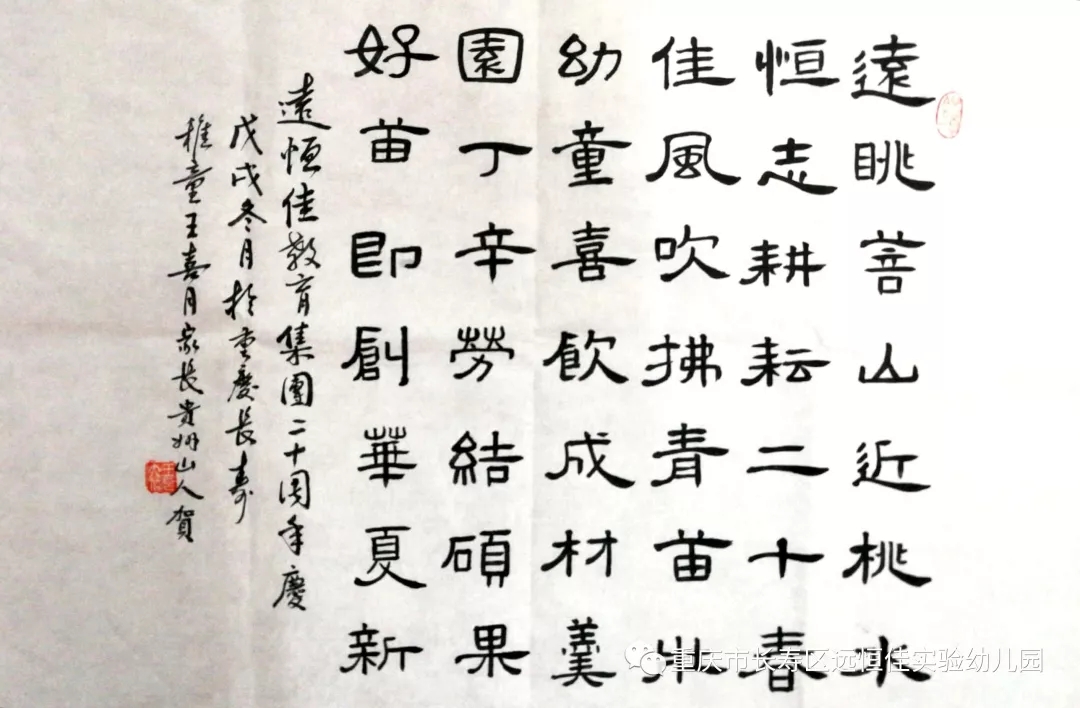 遠眺菩山近桃水
恒志耕耘二十春
佳風吹拂青苗出
幼童喜飲成材羹
園丁辛勞結碩果
好苗即創華夏新
遠恒佳教育集團二十周年慶
戊戌冬月於重慶長壽
稚童王喜月家長貴山人賀
重庆市长寿区远恒佳实验幼儿园